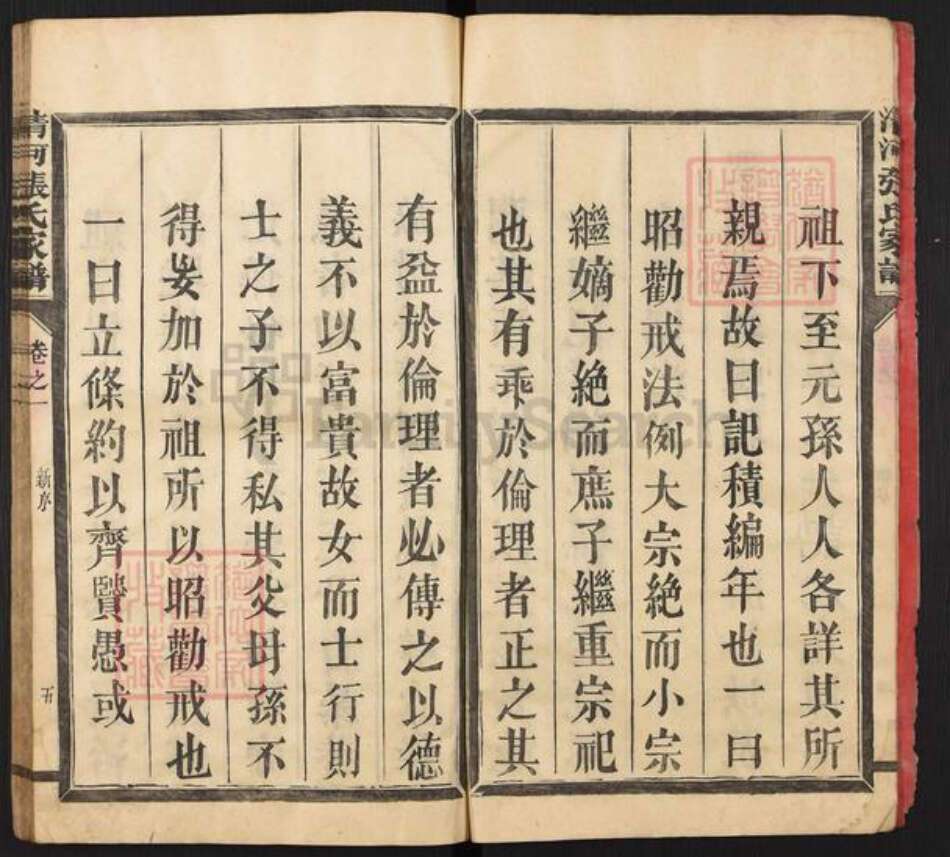 清河張氏家譜
祖下至元孫人人各詳其所
親焉故曰記積編年也一曰
昭勸戒法例大宗絶而小宗
繼嫡子絶而庶子繼重宗祀
也其有乖於倫理者正之其
有益於倫理者必傳之以德
義不以富貴故女而士行則
士之子不得私其父母孫不
得妄加於祖所以昭勸戒也
一曰立條約以齊賢愚或
清河張氏家譜
卷之一
新序
五
FamilySearch